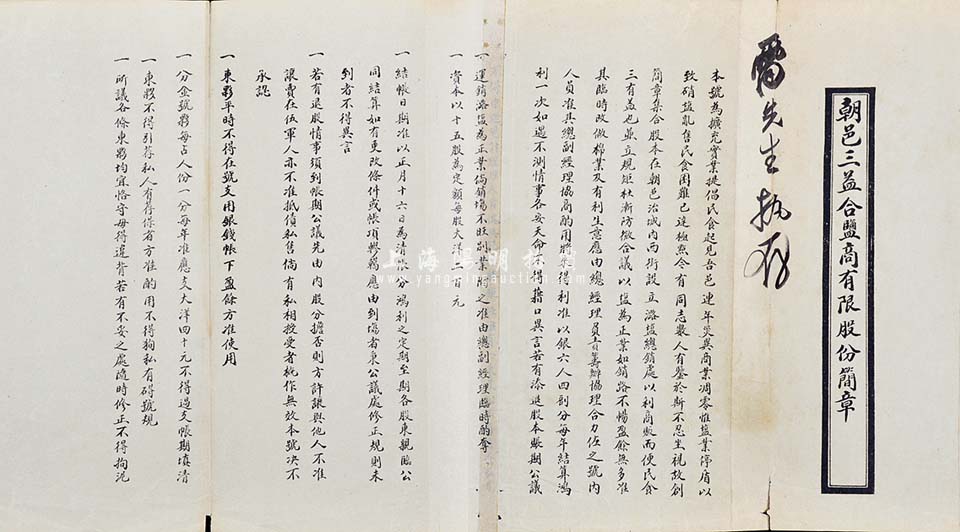 朝邑三益合鹽商有限股份簡章
先生執存
本號為擴充實業提倡民食起見吾邑連年災異商業凋零惟鹽業停盾以
致硝鹽亂售民食困難已達極點今有同志數人有鑒於斯不忍坐視故創
簡章集合股本在朝邑治城內西街設立潞鹽總銷處以利商販而便民食
三有益也並立規矩杜漸防微合議以鹽為正業如銷路不暢盈餘無多准
其臨時改做棉業及有利生意應由總經理負責籌辦協理合力佐之號內
人員准其總副經理協商酌用將來得利准以銀六人四剖分每年結算鴻
利一次如遇不測情事各安天命不得藉口異言若有添退股本賬期公議
一 運銷潞鹽為正業倘銷塲不旺副業附之准由總副經理臨時酌奪
一 資本以十五股為定額每股大洋二百元
一 結帳日期准以正月十六日為清帳分鴻利之定期至期各股東親臨公
同結算如有更改條件或帳項轇轕應由到塲者東公議處修正規則未
到者不得異言
一 若有退股情事須到帳期公議先由內股分擔否則方許讓與他人不准
讓賣在伍軍人亦不准抵債私售倘有私相授受者統作無效本號决不
承認
一 東夥平時不得在號支用銀錢帳下盈餘方准使用
一 分金號夥每占人份一分每年准應支大洋四十元不得過支帳期填清
一 東夥不得引荐私人有荐保者方准酌用不得狥私有碍號規
一 所議各條東夥均宜恪守毋得違背若有不妥之處隨時修正不得拘泥
上海陽明拍賣
www.yangmingauction.com